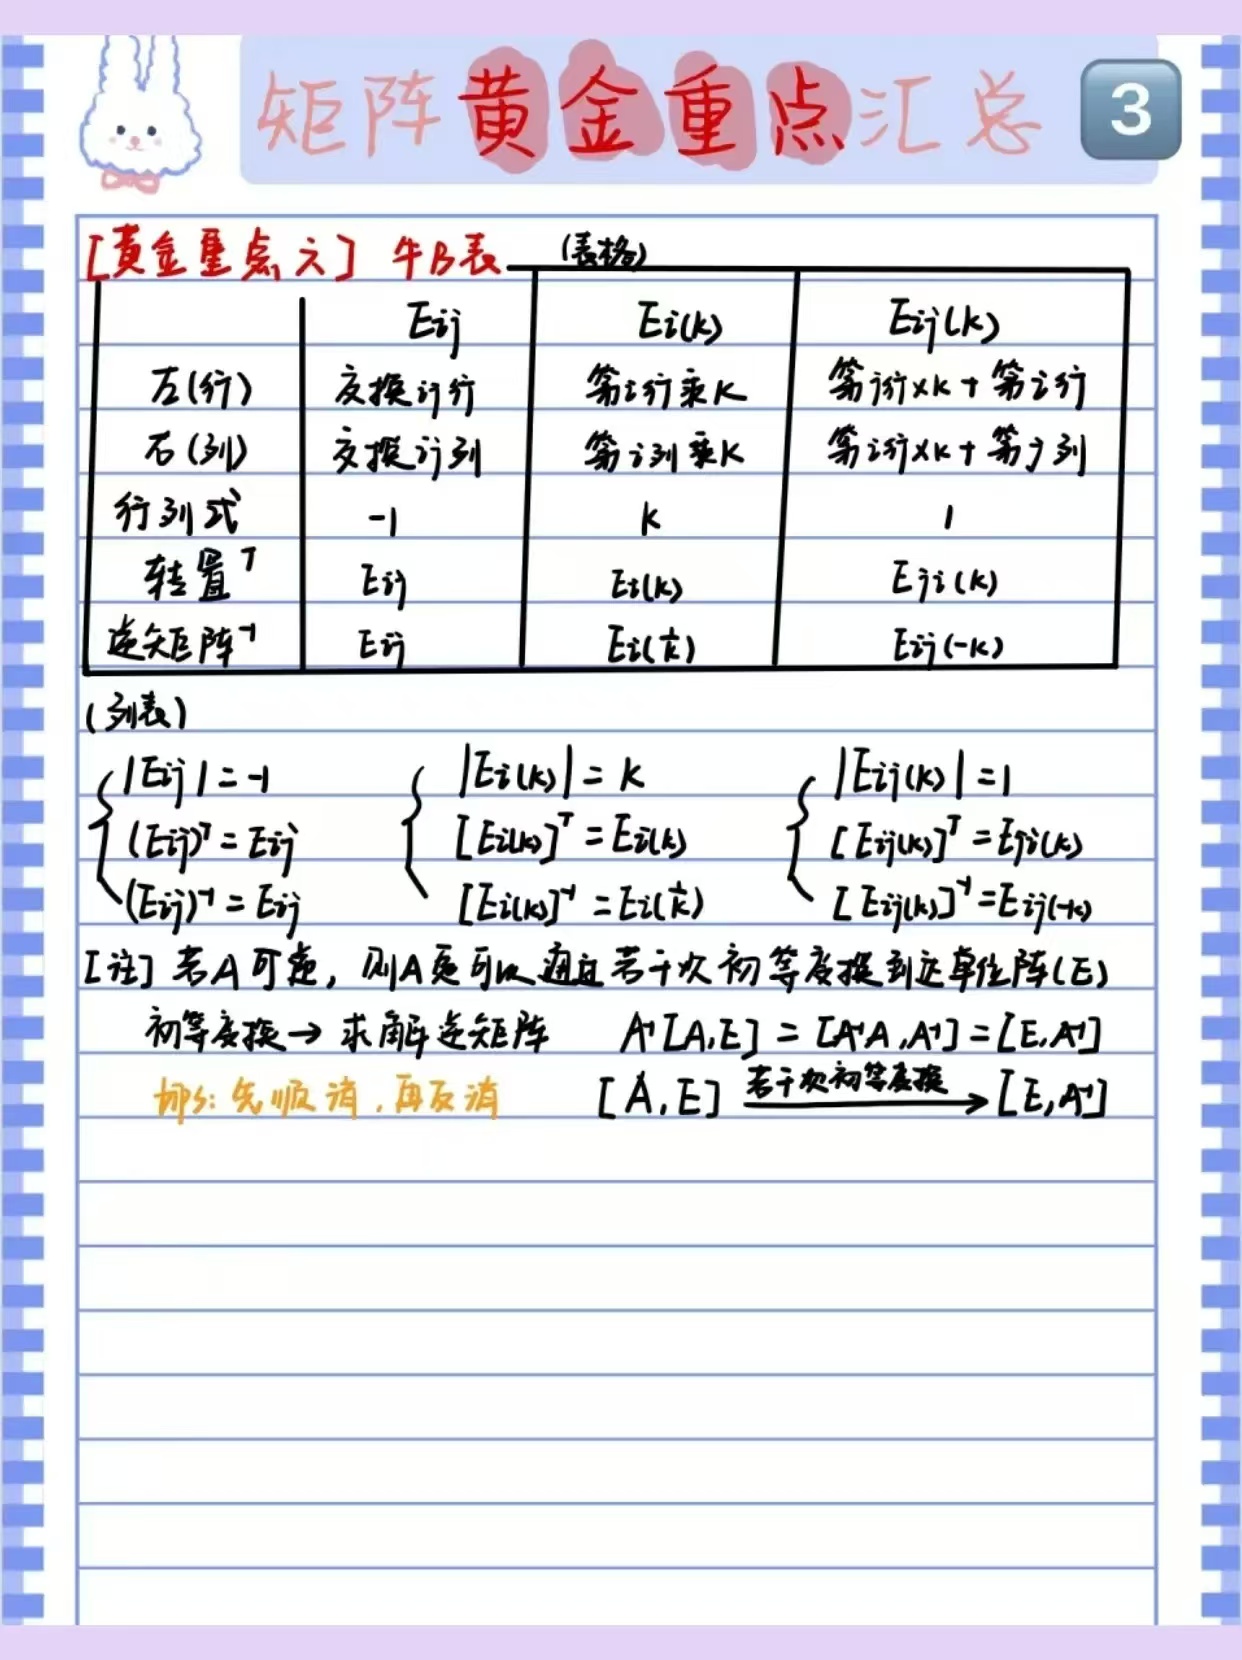 矩阵黄金重点汇总 3
[黄金重点六] 牛B表 (表格)
Eij Ei(k) Eij(k)
左(行) 交换ij行 第i行乘K 第j行×k+第i行
右(列) 交换ij列 第i列乘K 第i行×k+第j列
行列式 -1 k 1
转置ᵀ Eij Ei(k) Eji(k)
逆矩阵⁻¹ Eij Ei(1/k) Eij(-k)
(列表)
|Eij|=-1 |Ei(k)|=k |Eij(k)|=1
(Eij)ᵀ=Eij [Ei(k)]ᵀ=Ei(k) [Eij(k)]ᵀ=Eji(k)
(Eij)⁻¹=Eij [Ei(k)]⁻¹=Ei(1/k) [Eij(k)]⁻¹=Eij(-k)
[注] 若A可逆，则A更可以通过若干次初等变换到达单位阵(E)
初等变换→求解逆矩阵 A⁻¹[A,E]=[A⁻¹A,A⁻¹]=[E,A⁻¹]
tips:先顺消，再反消 [A,E] 若干次初等变换→[E,A⁻¹]